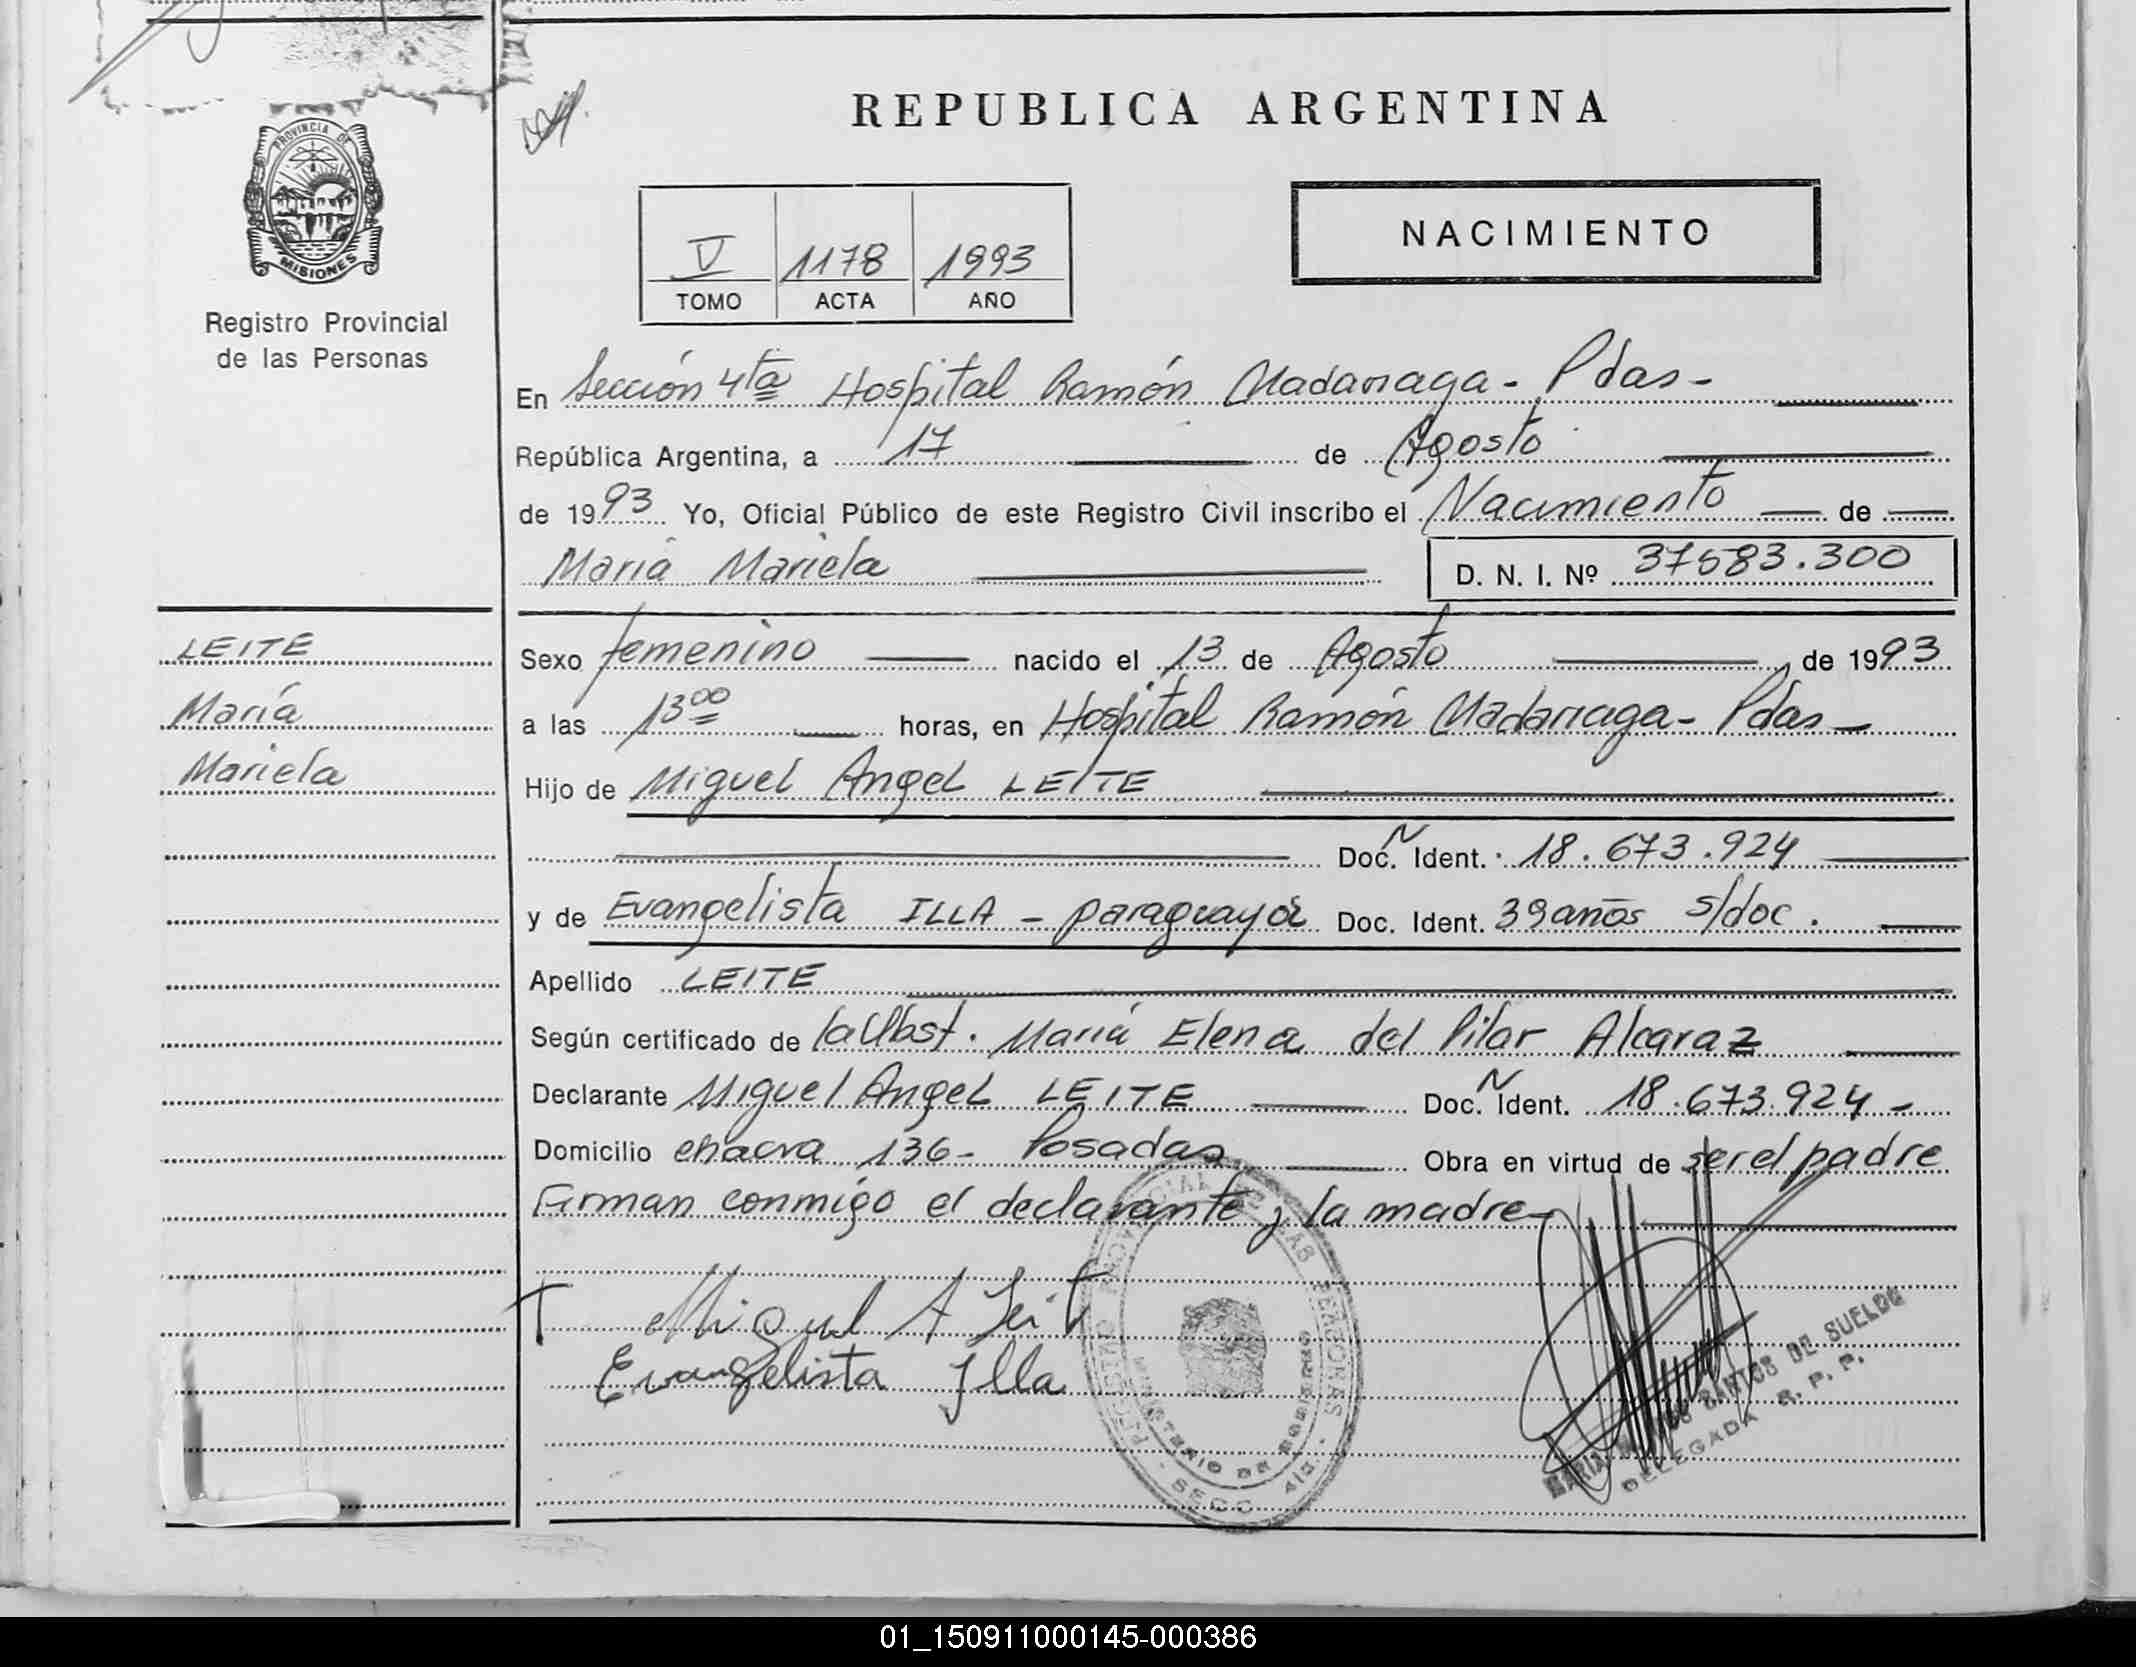 REPUBLICA ARGENTINA
PROVINCIA DE
MISIONES
Registro Provincial
de las Personas
V 1178 1993
TOMO ACTA AÑO
NACIMIENTO
En Sección 4ta Hospital Ramón Madariaga - Pdas -
República Argentina, a 17 de Agosto
de 1993 Yo, Oficial Público de este Registro Civil inscribo el Nacimiento de
María Mariela D. N. I. Nº 37583.300
LEITE
María
Mariela
Sexo femenino nacido el 13 de Agosto de 1993
a las 13 00 horas, en Hospital Ramón Madariaga - Pdas -
Hijo de Miguel Angel LEITE
Doc. N Ident. 18.673.924
y de Evangelista ILLA - paraguaya Doc. Ident. 39 años s/doc.
Apellido LEITE
Según certificado de la Obst. María Elena del Pilar Alcaraz
Declarante Miguel Angel LEITE Doc. N Ident. 18.673.924 -
Domicilio chacra 136 - Posadas Obra en virtud de ser el padre
Firman conmigo el declarante y la madre
Miguel A Leit
Evangelista Illa
REGISTRO PROVINCIAL DE LAS PERSONAS
MINISTERIO DE GOBIERNO
SECC. 4ta.
SANTOS DE SUELDO
DELEGADA R. P. P.
01_150911000145-000386